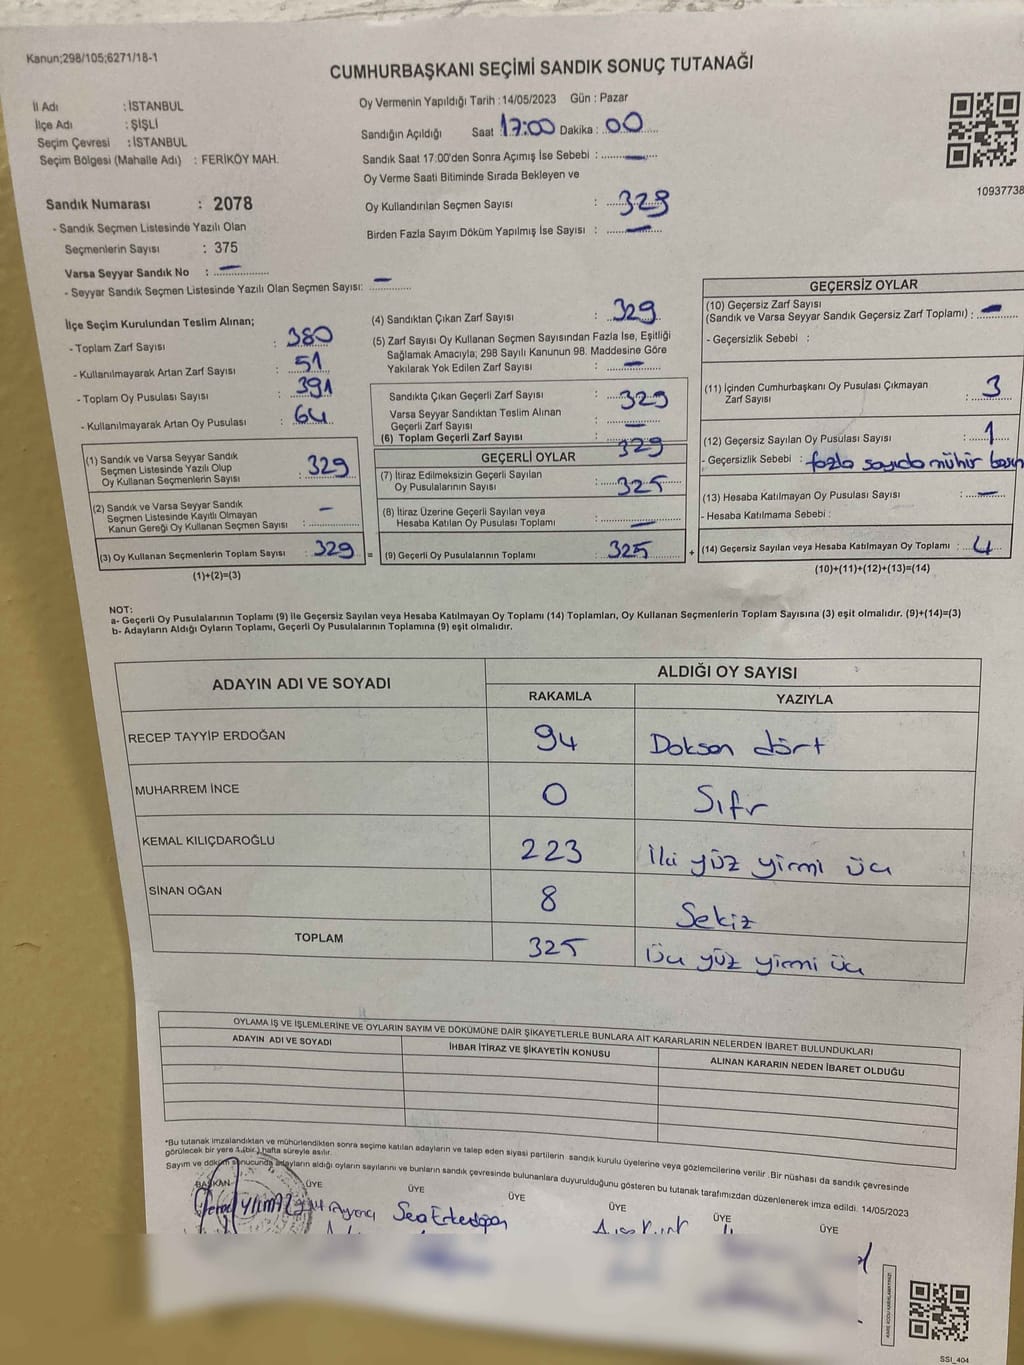 Kanun;298/105;6271/18-1
CUMHURBAŞKANI SEÇİMİ SANDIK SONUÇ TUTANAĞI
İl Adı : İSTANBUL
İlçe Adı : ŞİŞLİ
Seçim Çevresi : İSTANBUL
Seçim Bölgesi (Mahalle Adı) : FERİKÖY MAH.
Sandık Numarası : 2078
- Sandık Seçmen Listesinde Yazılı Olan
Seçmenlerin Sayısı : 375
Varsa Seyyar Sandık No : —
- Seyyar Sandık Seçmen Listesinde Yazılı Olan Seçmen Sayısı: —
Oy Vermenin Yapıldığı Tarih : 14/05/2023 Gün : Pazar
Sandığın Açıldığı Saat 17:00 Dakika : 00
Sandık Saat 17:00'den Sonra Açımış İse Sebebi : —
Oy Verme Saati Bitiminde Sırada Bekleyen ve
Oy Kullandırılan Seçmen Sayısı : 329
Birden Fazla Sayım Döküm Yapılmış İse Sayısı : —
10937738
İlçe Seçim Kurulundan Teslim Alınan;
- Toplam Zarf Sayısı : 380
- Kullanılmayarak Artan Zarf Sayısı : 51
- Toplam Oy Pusulası Sayısı : 391
- Kullanılmayarak Artan Oy Pusulası : 64
(1) Sandık ve Varsa Seyyar Sandık
Seçmen Listesinde Yazılı Olup
Oy Kullanan Seçmenlerin Sayısı : 329
(2) Sandık ve Varsa Seyyar Sandık
Seçmen Listesinde Kayıtlı Olmayan
Kanun Gereği Oy Kullanan Seçmen Sayısı : —
(3) Oy Kullanan Seçmenlerin Toplam Sayısı : 329 =
(1)+(2)=(3)
(4) Sandıktan Çıkan Zarf Sayısı : 329
(5) Zarf Sayısı Oy Kullanan Seçmen Sayısından Fazla İse, Eşitliği
Sağlamak Amacıyla; 298 Sayılı Kanunun 98. Maddesine Göre
Yakılarak Yok Edilen Zarf Sayısı : —
Sandıkta Çıkan Geçerli Zarf Sayısı : 329
Varsa Seyyar Sandıktan Teslim Alınan
Geçerli Zarf Sayısı : —
(6) Toplam Geçerli Zarf Sayısı : 329
GEÇERLİ OYLAR
(7) İtiraz Edilmeksizin Geçerli Sayılan
Oy Pusulalarının Sayısı : 325
(8) İtiraz Üzerine Geçerli Sayılan veya
Hesaba Katılan Oy Pusulası Toplamı : —
(9) Geçerli Oy Pusulalarının Toplamı : 325 +
GEÇERSİZ OYLAR
(10) Geçersiz Zarf Sayısı
(Sandık ve Varsa Seyyar Sandık Geçersiz Zarf Toplamı) : —
- Geçersizlik Sebebi :
(11) İçinden Cumhurbaşkanı Oy Pusulası Çıkmayan
Zarf Sayısı : 3
(12) Geçersiz Sayılan Oy Pusulası Sayısı : 1
- Geçersizlik Sebebi : fazla sayıda mühür basın
(13) Hesaba Katılmayan Oy Pusulası Sayısı : —
- Hesaba Katılmama Sebebi :
(14) Geçersiz Sayılan veya Hesaba Katılmayan Oy Toplamı : 4
(10)+(11)+(12)+(13)=(14)
NOT:
a- Geçerli Oy Pusulalarının Toplamı (9) ile Geçersiz Sayılan veya Hesaba Katılmayan Oy Toplamı (14) Toplamları, Oy Kullanan Seçmenlerin Toplam Sayısına (3) eşit olmalıdır. (9)+(14)=(3)
b- Adayların Aldığı Oyların Toplamı, Geçerli Oy Pusulalarının Toplamına (9) eşit olmalıdır.
ADAYIN ADI VE SOYADI ALDIĞI OY SAYISI
RAKAMLA YAZIYLA
RECEP TAYYİP ERDOĞAN 94 Doksan dört
MUHARREM İNCE 0 Sıfr
KEMAL KILIÇDAROĞLU 223 İki yüz yirmi üç
SİNAN OĞAN 8 Sekiz
TOPLAM 325 Üç yüz yirmi üç
OYLAMA İŞ VE İŞLEMLERİNE VE OYLARIN SAYIM VE DÖKÜMÜNE DAİR ŞİKAYETLERLE BUNLARA AİT KARARLARIN NELERDEN İBARET BULUNDUKLARI
ADAYIN ADI VE SOYADI İHBAR İTİRAZ VE ŞİKAYETİN KONUSU ALINAN KARARIN NEDEN İBARET OLDUĞU
*Bu tutanak imzalandıktan ve mühürlendikten sonra seçime katılan adayların ve talep eden siyasi partilerin sandık kurulu üyelerine veya gözlemcilerine verilir. Bir nüshası da sandık çevresinde
görülecek bir yere 1 (bir) hafta süreyle asılır.
Sayım ve döküm sonucunda adayların aldığı oyların sayılarını ve bunların sandık çevresinde bulunanlara duyurulduğunu gösteren bu tutanak tarafımızdan düzenlenerek imza edildi. 14/05/2023
BAŞKAN ÜYE ÜYE ÜYE ÜYE ÜYE ÜYE
YILMAZ
KARE KODU KARALAMAYINIZ!
SSI_404